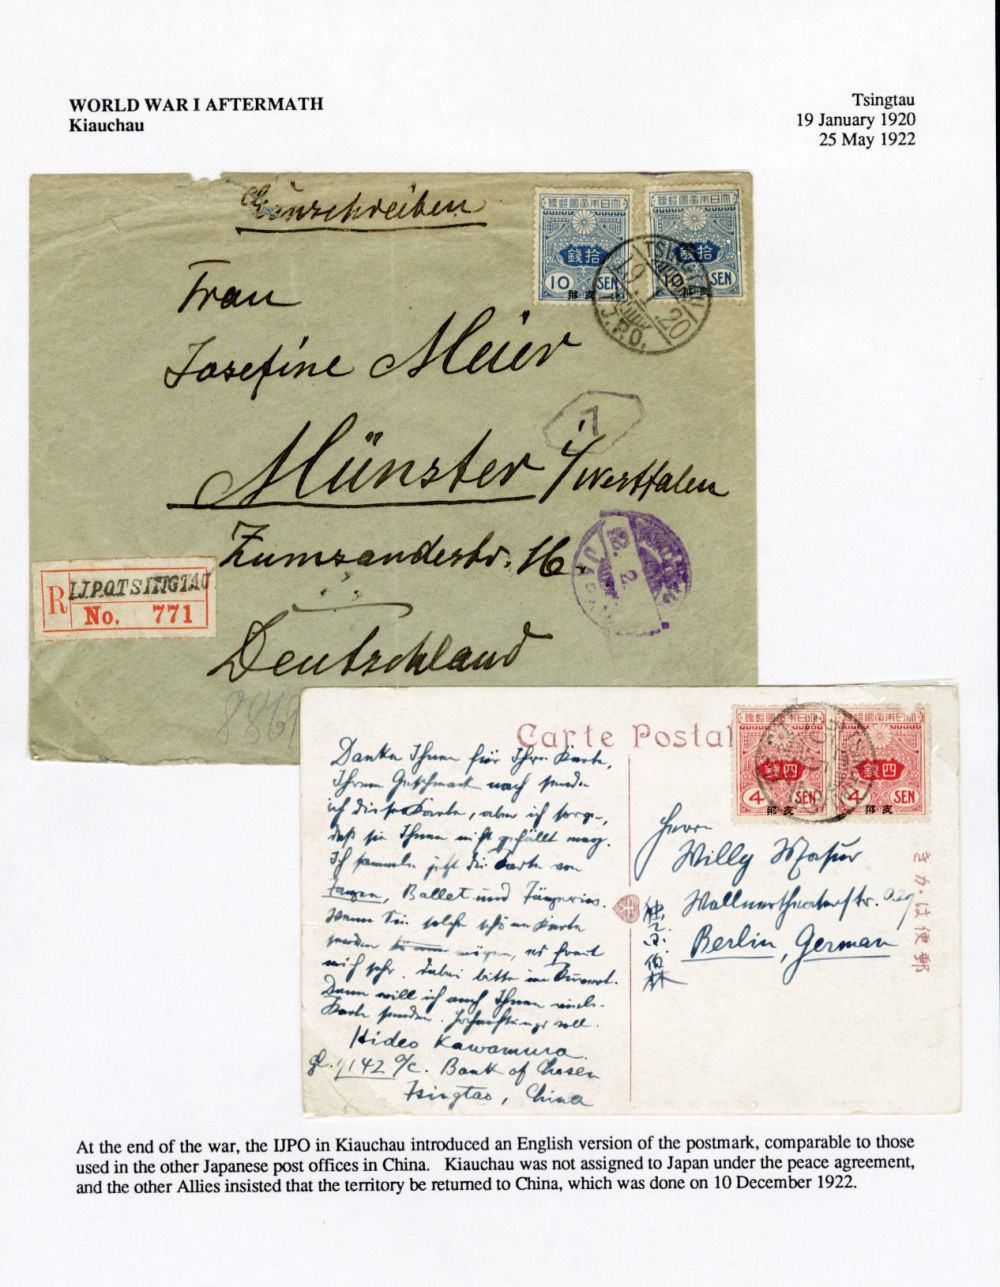 WORLD WAR I AFTERMATH
Kiauchau
Tsingtau
19 January 1920
25 May 1922
Einschreiben
大日本帝國郵便
拾錢
10 SEN
支那
大日本帝國郵便
拾錢
SEN
支那
I.J.P.O.
20
Frau
Josefine Meier
7
Münster i/Westfalen
Zumsandestr. 16.
Deutschland
R I.J.P.O.TSINGTAU
No. 771
2.
JAPAN
Carte Postal
大日本帝國郵便
四錢
4 SEN
支那
大日本帝國郵便
四錢
4 SEN
支那
Danke Ihnen für Ihre Karte,
Ihrem Geschmack nach sende
ich diese Karte, aber ich sorge,
daß sie Ihnen nicht gefällt mag.
Ich sammele jetzt die Karte von
Tanzen, Ballet und Tänzerin.
Wenn Sie solche schöne Karte
senden mögen, es freut
mich sehr. Dabei bitte im Kuvert.
Dann will ich auch Ihnen viele
Karte senden. Hochachtungsvoll.
Hideo Kawamura.
9142 c/o. Bank of Chosen
Tsingtao, China
Herrn
Willy
Wallnertheaterstr.
Berlin, German
きかは便郵
At the end of the war, the IJPO in Kiauchau introduced an English version of the postmark, comparable to those
used in the other Japanese post offices in China. Kiauchau was not assigned to Japan under the peace agreement,
and the other Allies insisted that the territory be returned to China, which was done on 10 December 1922.